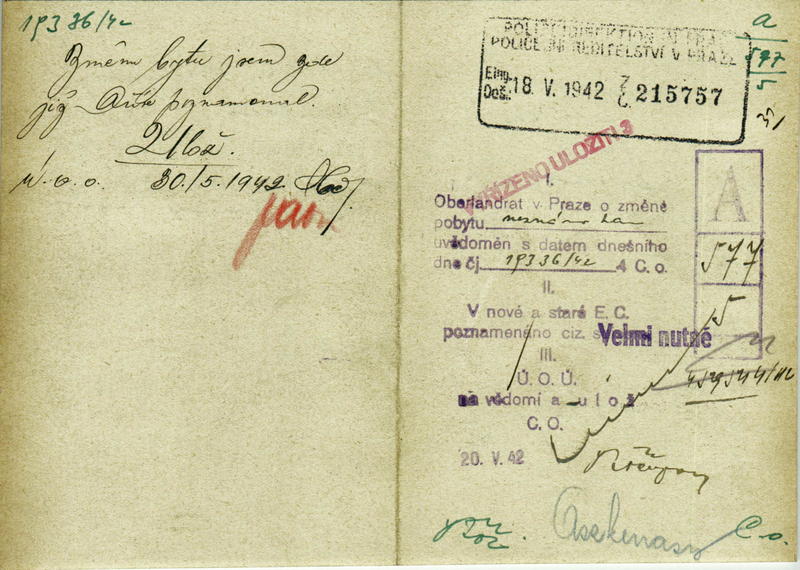 19336/42
Změnu bytu jsem zde
již poznamenal.
Ulož.
30/5.1942
jan
a
597
POLIZEIDIREKTION IN PRAG
POLICEJNÍ ŘEDITELSTVÍ V PRAZE
Eing.
Doš. 18. V. 1942 Z. Č. 215757
VYŘÍZENO ULOŽITI
I.
Oberlandrat v Praze o změně
pobytu neznámo kam
uvědoměn s datem dnešního
dne čj. 19336/42 4 C. o.
II.
V nové a staré E. C.
poznamenáno ciz. s
Velmi nutné
III.
Ú. O. Ú.
na vědomí a - u l o ž
C. O.
20. V. 42
A
577
5
Aszkenasy
C. o.